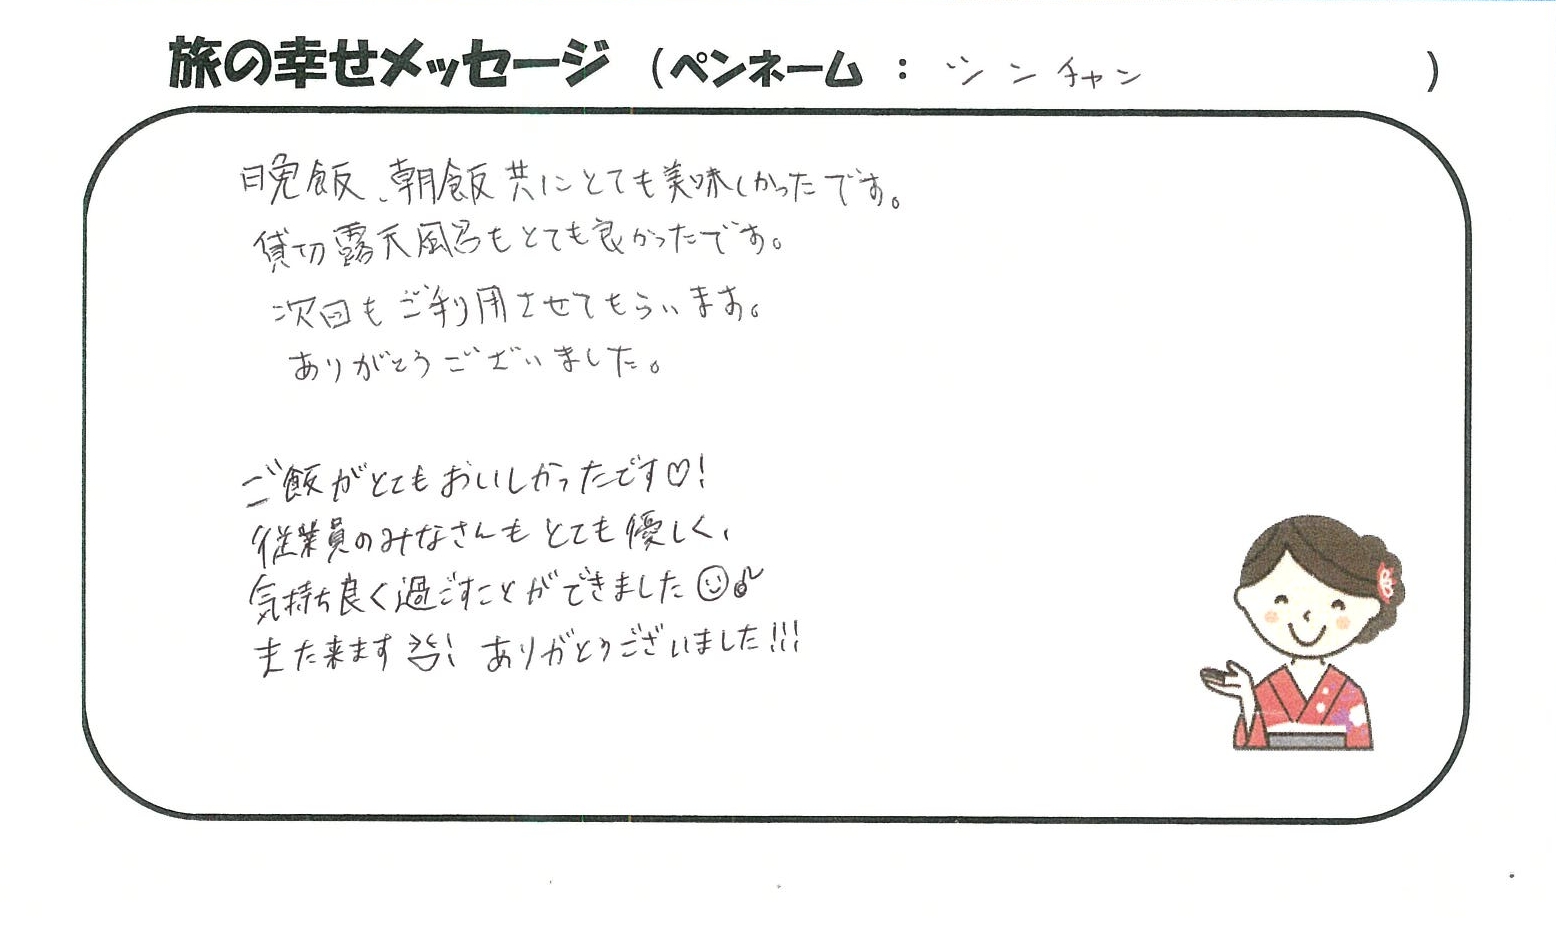 旅の幸せメッセージ （ペンネーム ： ツンチャン ）
晩飯、朝飯共にとても美味しかったです。
貸切露天風呂もとても良かったです。
次回もご利用させてもらいます。
ありがとうございました。
ご飯がとてもおいしかったです♡!
従業員のみなさんもとても優しく、
気持ち良く過ごすことができました☺♪
また来ます! ありがとうございました!!!